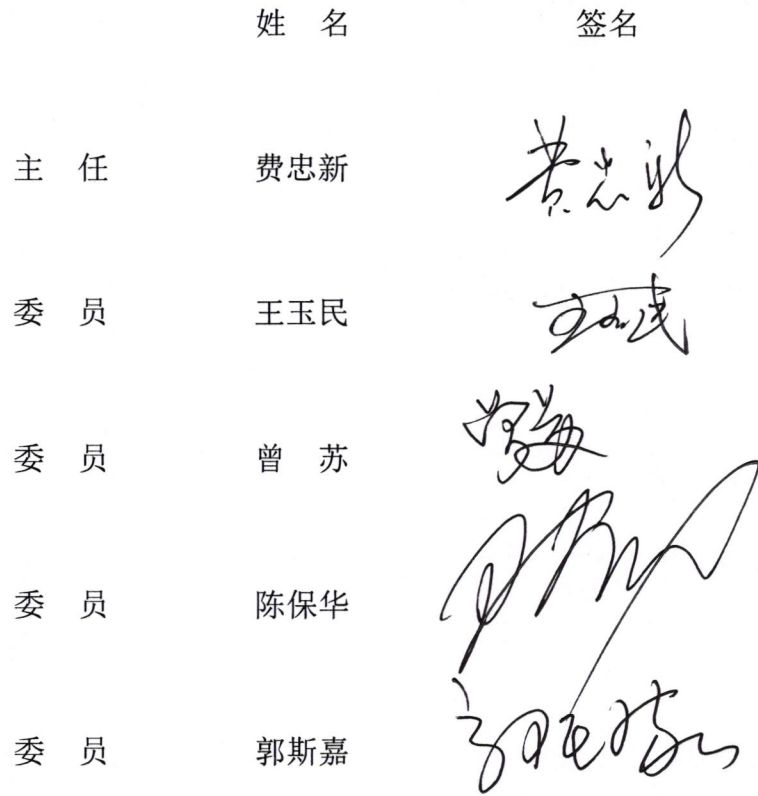 姓 名 签名
主 任 费忠新 费忠新
委 员 王玉民 王玉民
委 员 曾 苏
委 员 陈保华
委 员 郭斯嘉